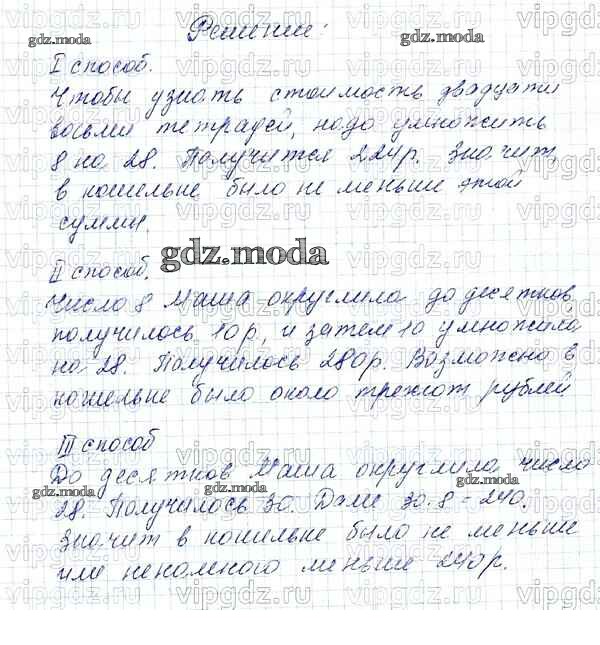 Решение:
I способ.
Чтобы узнать стоимость двадцати
восьми тетрадей, надо умножить
8 на 28. Получится 224р. Значит,
в кошельке было не меньше этой
суммы.
gdz.moda
II способ.
Число 8 Маша округлила до десятков,
получилось 10р, и затем 10 умножила
на 28. Получилось 280р. Возможно в
кошельке было около трехсот рублей
III способ
До десятков Маша округлила число
28. Получилось 30. Далее 30·8=240.
Значит в кошельке было не меньше
или ненамного меньше 240р.